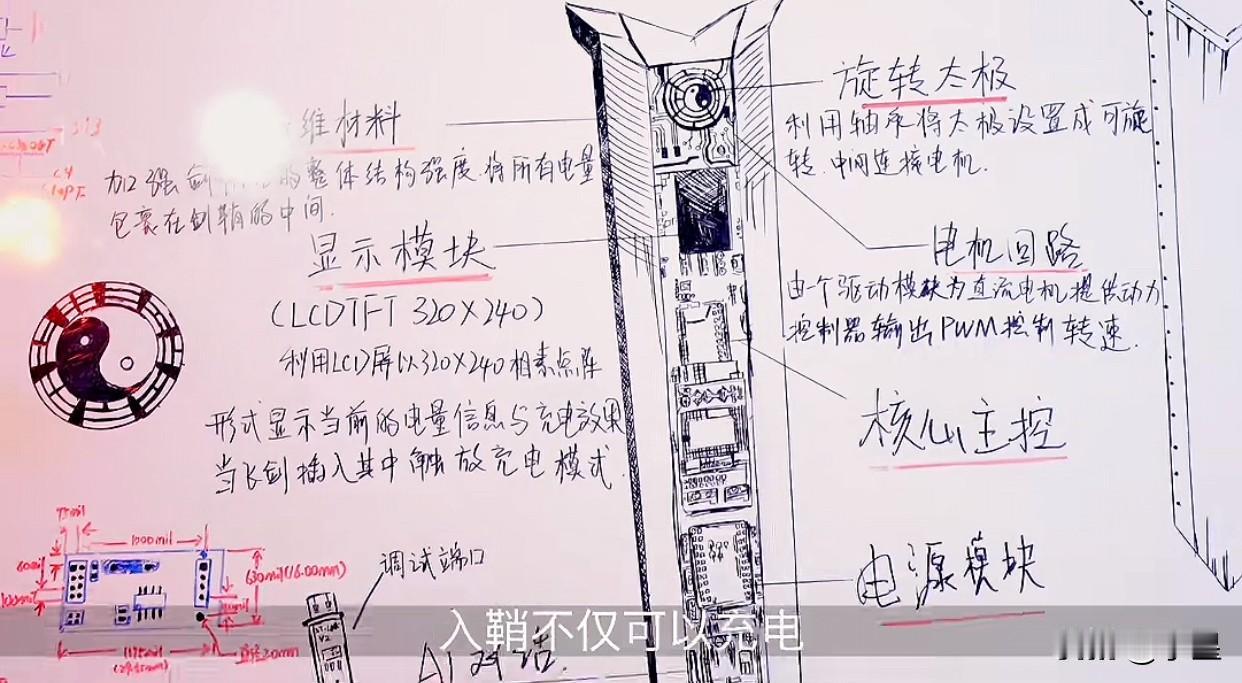 维材料
加强剑 的整体结构强度.将所有电量
包裹在剑鞘的中间.
显示模块
(LCDTFT 320X240)
利用LCD屏以320X240相素点阵
形式显示当前的电量信息与充电效果
当飞剑插入其中触放充电模式.
旋转太极
利用轴承将太极设置成可旋
转.中间连接电机.
电机回路
由一个驱动模块为直流电机提供动力
控制器输出PWM控制转速.
核心主控
电源模块
75mil
1000mil
60mil
100mil
630mil(16.00mm)
1175mil
直径2.0mm
调试端口
AI对话.
入鞘不仅可以充电